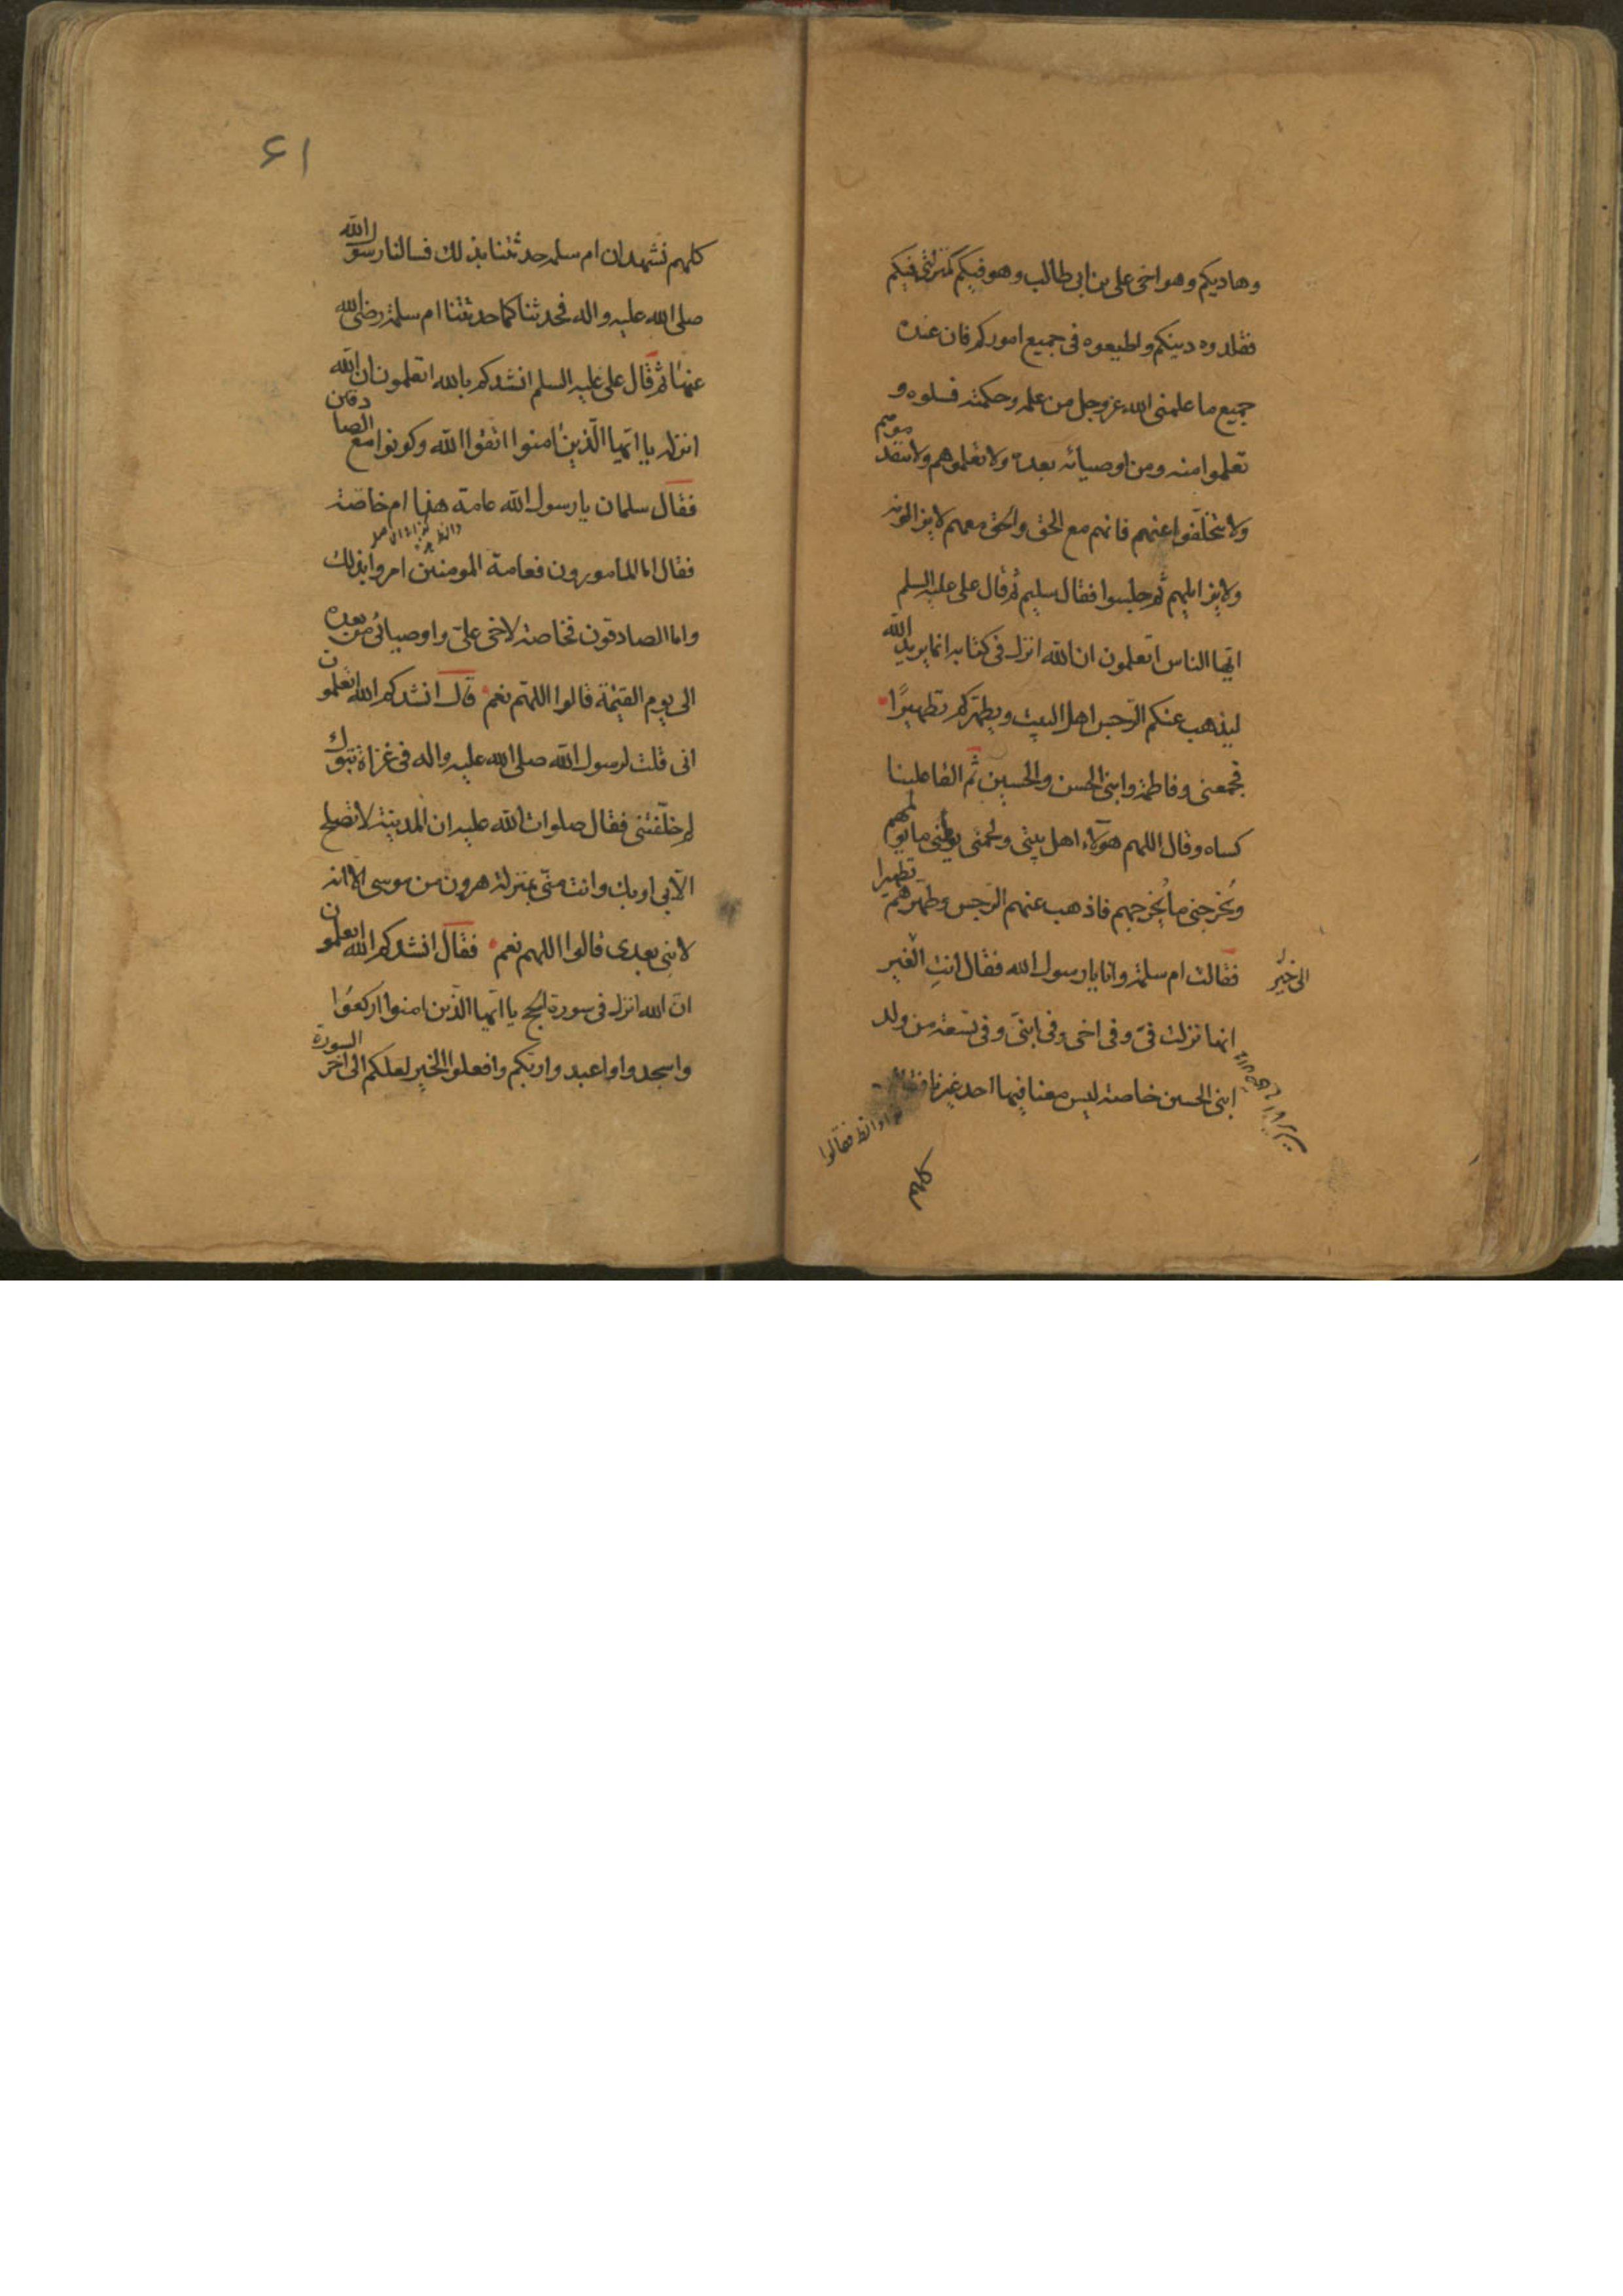 وهاديكم وهو اخى على بن ابى طالب وهو فيكم كمنزلتى فيكم
فقلدوه دينكم واطيعوه فى جميع اموركم فان عنده
جميع ما علمنى الله عز وجل من علمه وحكمته فسلوه و
تعلموا منه ومن اوصيائه بعده ولا تعلموهم ولا تتقدموهم
ولا تخلّفوا عنهم فانهم مع الحق والحق معهم لا يزايلونه
ولا يزايلهم ثم جلسوا فقال سليم ثم قال على عليه السلم
ايّها الناس اتعلمون ان الله انزل فى كتابه انما يريد الله
ليذهب عنكم الرّجس اهل البيت ويطهّركم تطهيرًا
فجمعنى وفاطمة وابنى الحسن والحسين ثم القا علينا
كساه وقال اللهم هؤلاء اهل بيتى ولحمتى يولمنى ما يولمهم
ويُخرجنى ما يُخرجهم فاذهب عنهم الرّجس وطهّرهم تطهيرا
فقالت ام سلمة وانا يا رسول الله فقال انتِ الغير
الى خيْر
انها نزلت فىّ وفى اخى وفى ابنىّ وفى تسعة من ولد
ابنى الحسين خاصة ليس معنا فيها احد غيرنا
فقالوا
كلهم
۶۱
كلهم نشهد ان ام سلمه حدثتنا بذلك فسالنا رسول الله
صلى الله عليه واله فحدثنا كما حدثتنا ام سلمة رضى الله
عنها ثم قال على عليه السلم انشدكم بالله اتعلمون ان الله
انزل يا ايّها الّذين امنوا اتقوا الله وكونوا مع الصادقين
فقال سلمان يا رسول الله عامة هذا ام خاصة
فقال اما المامورون فعامة المومنين امروا بذلك
واما الصادقون فخاصة لاخى علىّ واوصيائى من بعده
الى يوم القيمة قالوا اللهم نعم قال انشدكم الله اتعلمون
انى قلت لرسول الله صلى الله عليه واله فى غزاة تبوك
لم خلّفتنى فقال صلوات الله عليه ان المدينة لا تصلح
الّا بى او بك وانت منّى بمنزلة هرون من موسى الا انه
لا نبى بعدى قالوا اللهم نعم فقال انشدكم الله اتعلمون
انّ الله انزل فى سورة الحج يا ايّها الّذين امنوا اركعوا
واسجدوا واعبدوا ربكم وافعلوا الخير لعلكم الى اخر السورة